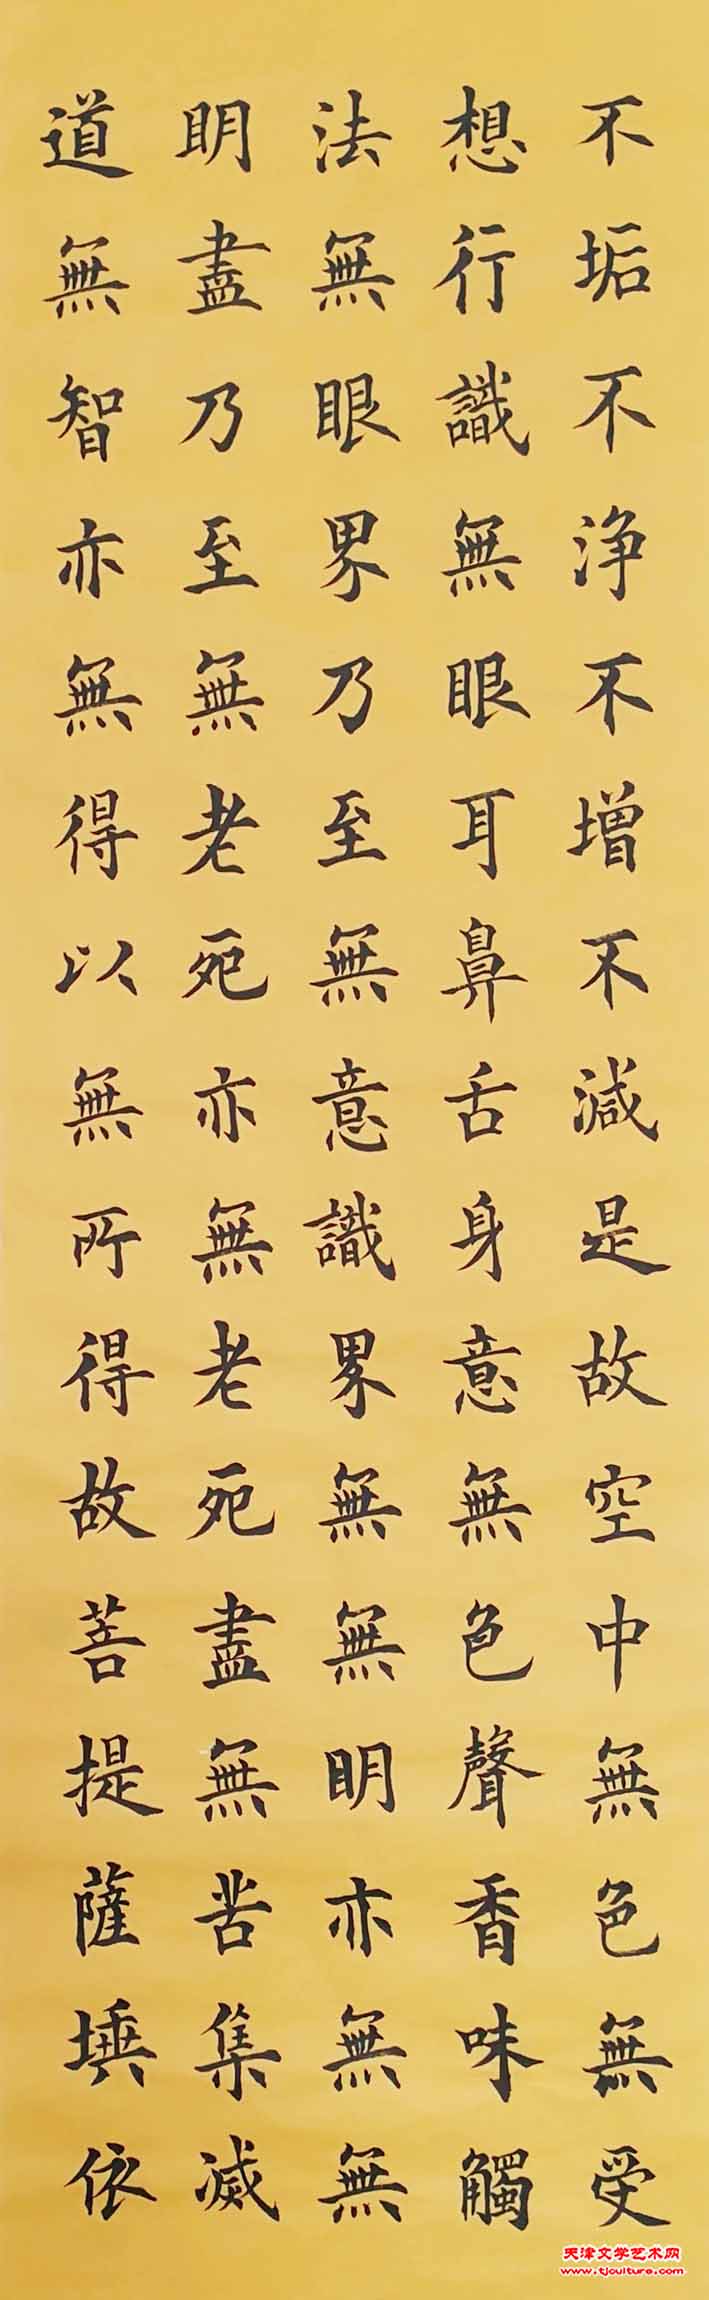 不垢不浄不增不減是故空中無色無受
想行識無眼耳鼻舌身意無色聲香味觸
法無眼界乃至無意識界無無明亦無無
明盡乃至無老死亦無老死盡無苦集滅
道無智亦無得以無所得故菩提薩埵依
天津文学艺术网
www.tjculture.com